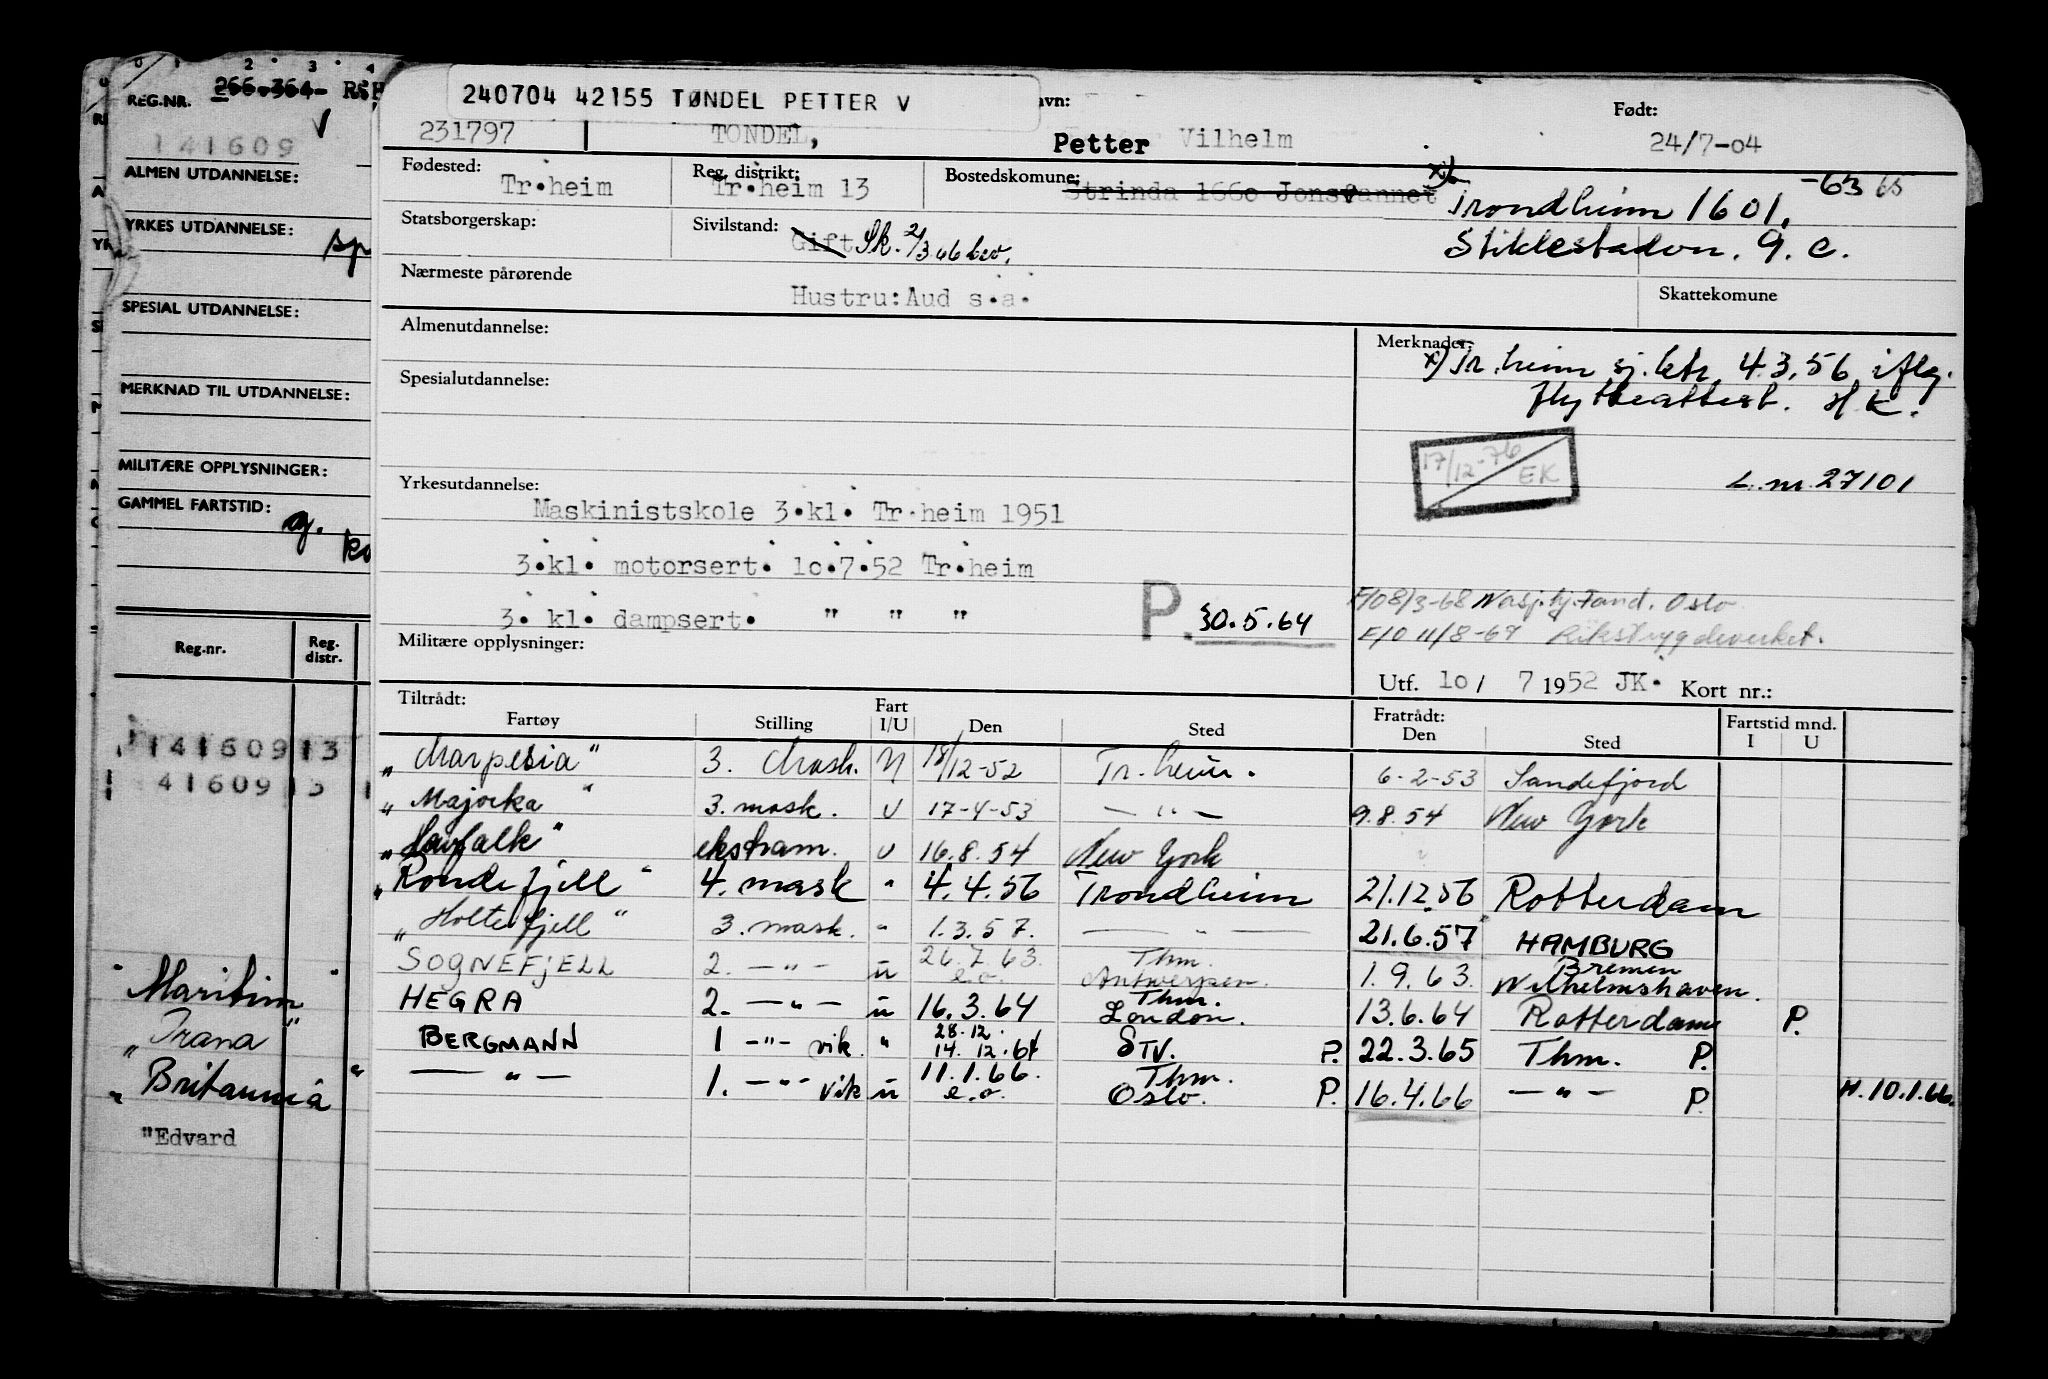 266-364- RSF
REG.NR.
141609
ALMEN UTDANNELSE:
YRKES UTDANNELSE:
SPESIAL UTDANNELSE:
MERKNAD TIL UTDANNELSE:
MILITÆRE OPPLYSNINGER:
GAMMEL FARTSTID:
Reg.nr. Reg. distr.
141609 13
41609 13
"Maritim"
"Trana"
"Britannia"
"Edvard
240704 42155 TØNDEL PETTER V
avn: Født:
231797 TONDEL, Petter Vilhelm 24/7-04
Fødested: Tr.heim Reg. distrikt: Tr.heim 13 Bostedskommune: Strinda 1660 Jonsvannet x) Trondheim 1601, -63 65
Statsborgerskap: Sivilstand: Gift Sk. 2/3 66 bev. Stiklestadvn. 9. c.
Nærmeste pårørende
Hustru: Aud s.a. Skattekomune
Almenutdannelse: Merknader:
x) Tr.heim sj.ktr. 4.3.56 iflg.
Spesialutdannelse: flytteattest. H.K.
17/12-76 EK
Yrkesutdannelse: L.nr. 27101
Maskinistskole 3.kl. Tr.heim 1951
3.kl. motorsert. 10.7.52 Tr.heim
3. kl. dampsert. " " " P. 30.5.64
F/O 8/3-68 Oslo
F/O 11/8-69 Rikstrygdeverket.
Militære opplysninger:
Utf. 10/ 7 1952 JK. Kort nr.:
Tiltrådt: Fratrådt: Fartstid mnd.
Fartøy Stilling Fart I/U Den Sted Den Sted I U
"Marpesia" 3. Mask. U 18/12-52 Tr.heim. 6-2-53 Sandefjord
"Majorka" 3. mask. U 17-4-53 — " — 9.8.54 New York
"Havfalk" ekstram. U 16.8.54 New York
"Rondefjell" 4. mask " 4.4.56 Trondheim 21.12.56 Rotterdam
"Holtefjell" 3. mask. " 1.3.57. — " — 21.6.57 HAMBURG
SOGNEFJELL 2. — " — u 26.7.63. e.o. Thm. Antwerpen. 1.9.63. Bremen Wilhelmshaven.
HEGRA 2. — " — u 16.3.64 Thm. London. 13.6.64 Rotterdam P.
BERGMANN 1 — " — vik. " 28.12. 14.12.64 STV. P. 22.3.65 Thm. P.
— " — 1. — " — vik u 11.1.66. e.o. Thm. Oslo. P. 16.4.66 — " — P. H. 10.1.66.